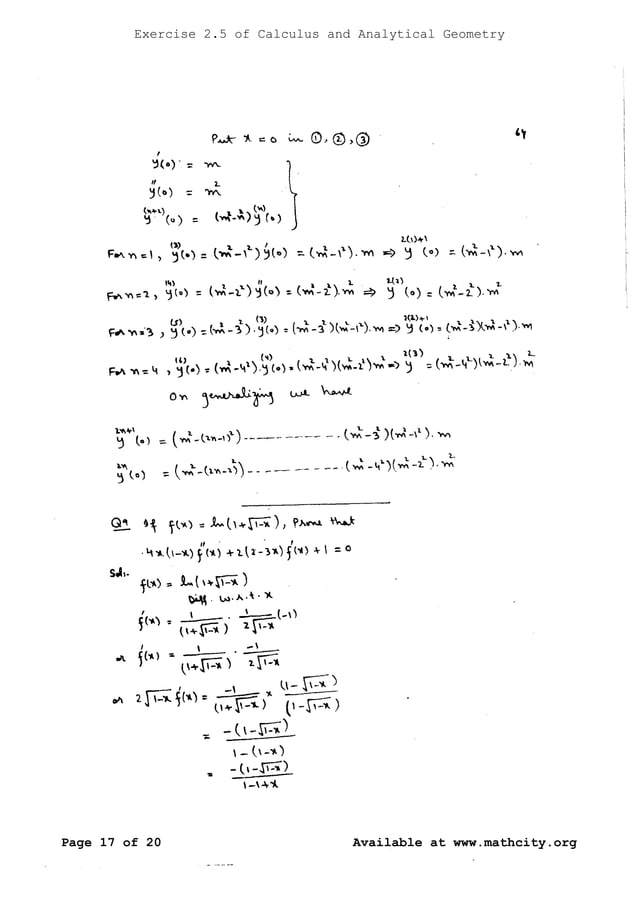 Exercise 2.5 of Calculus and Analytical Geometry
64
Put x = 0 in ①, ②, ③
y'(0) = m
y''(0) = m²
y⁽ⁿ⁺²⁾(0) = (m²-n²) y⁽ⁿ⁾(0)
For n=1, y⁽³⁾(0) = (m²-1²) y'(0) = (m²-1²).m ⇒ y²⁽¹⁾⁺¹(0) = (m²-1²).m
For n=2, y⁽⁴⁾(0) = (m²-2²) y''(0) = (m²-2²).m² ⇒ y²⁽²⁾(0) = (m²-2²).m²
For n=3, y⁽⁵⁾(0) = (m²-3²).y⁽³⁾(0) = (m²-3²)(m²-1²).m ⇒ y²⁽²⁾⁺¹(0) = (m²-3²)(m²-1²).m
For n=4, y⁽⁶⁾(0) = (m²-4²).y⁽⁴⁾(0) = (m²-4²)(m²-2²)m² ⇒ y²⁽³⁾ = (m²-4²)(m²-2²).m²
On generalizing we have
y²ⁿ⁺¹(0) = (m²-(2n-1)²)--------------.(m²-3²)(m²-1²).m
y²ⁿ(0) = (m²-(2n-2)²)--------------.(m²-4²)(m²-2²).m²
Q9 If f(x) = ln(1+√1-x), Prove that
4x(1-x) f''(x) + 2(2-3x) f'(x) + 1 = 0
Sol:-
f(x) = ln(1+√1-x)
Diff. w.r.t. x
f'(x) = 1/(1+√1-x) . 1/2√1-x (-1)
or f'(x) = 1/(1+√1-x) . -1/2√1-x
or 2√1-x f'(x) = -1/(1+√1-x) × (1-√1-x)/(1-√1-x)
= -(1-√1-x)/1-(1-x)
= -(1-√1-x)/1-1+x
Page 17 of 20
Available at www.mathcity.org